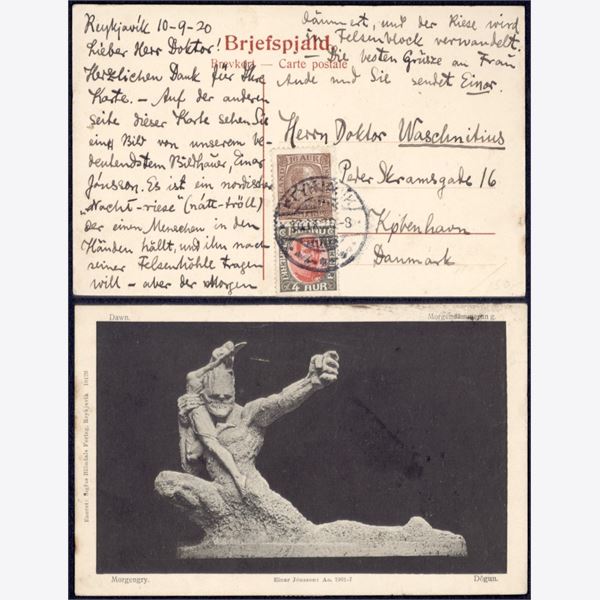 Reykjavík 10-9-20
Lieber Herr Doktor!
Herzlichen Dank für Ihre
Karte. – Auf der anderen
Seite dieser Karte sehen Sie
ein Bild von unserem be-
deutendstem Bildhauer, Einar
Jónsson. Es ist ein nordischer
„Nacht-riese“ (nátt-tröll)
der einen Menschen in den
Händen hällt, und ihn nach
seiner Felsenhöhle tragen
will – aber der Morgen
dämmert, und der Riese wird
in Felsenblock verwandelt.
– Die besten Grüsse an Frau
Aude und Sie sendet Einar.
Brjefspjald
Brevkort — Carte postale
Herrn Doktor Waschnitius
Peder Skramsgade 16
København
Danmark
10 AUR
4 AUR
Dawn.
Morgendämmerung.
Einar Jónsson: Ao. 190
Morgengry.
Dögun.